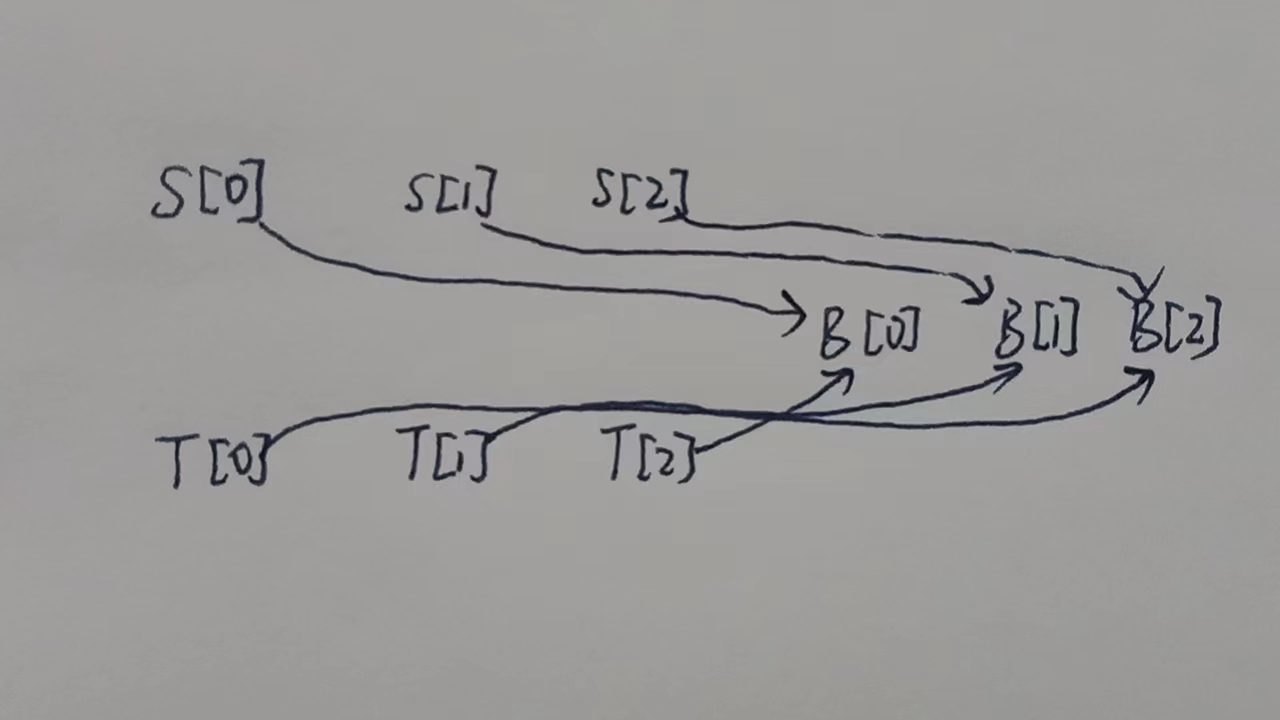 S[0] S[1] S[2]
B[0] B[1] B[2]
T[0] T[1] T[2]